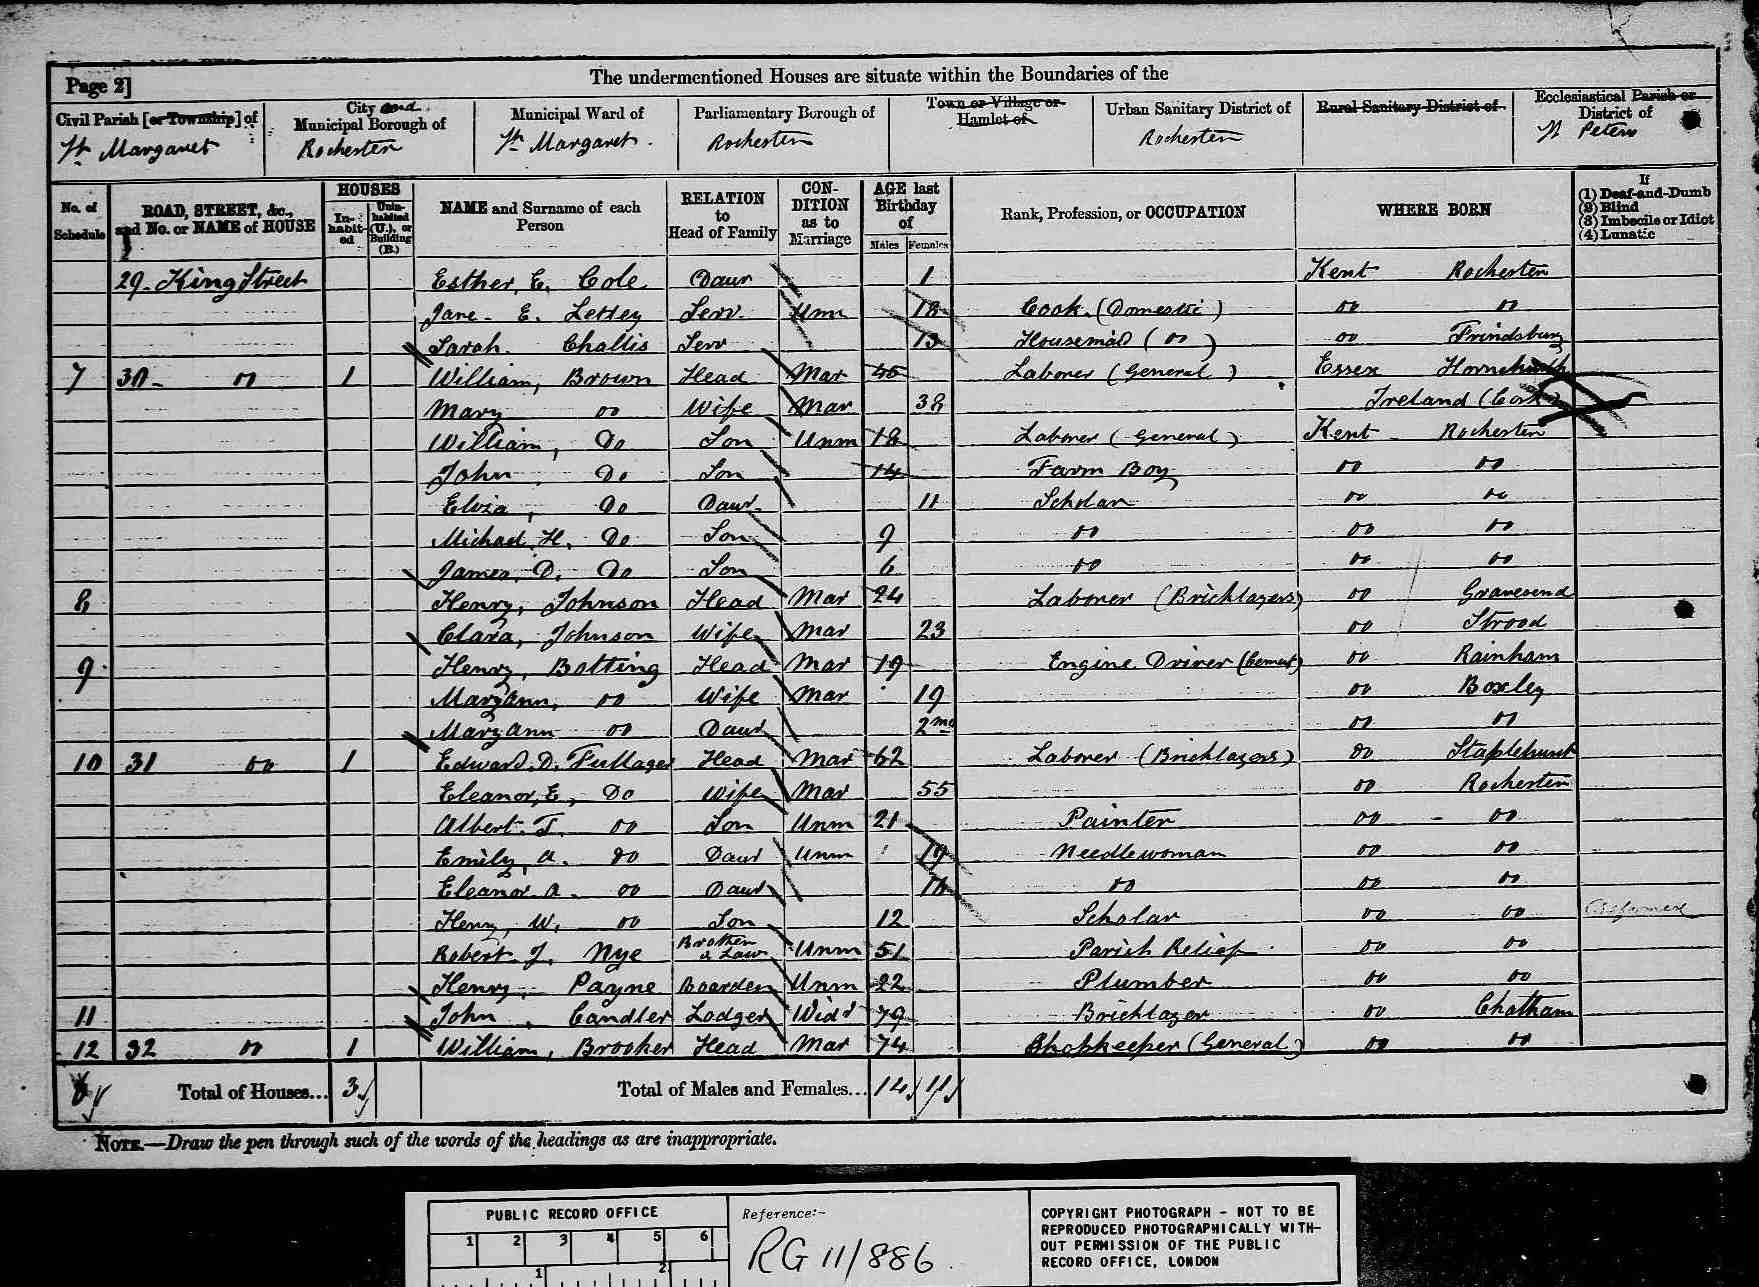 Page 2]
The undermentioned Houses are situate within the Boundaries of the
Civil Parish [or Township] of
St Margaret
City and
Municipal Borough of
Rochester
Municipal Ward of
St Margaret.
Parliamentary Borough of
Rochester
Town or Village or
Hamlet of
Urban Sanitary District of
Rochester
Rural Sanitary District of
Ecclesiastical Parish or
District of
St Peters
No. of
Schedule
ROAD, STREET, &c.,
and No. or NAME of HOUSE
HOUSES
In-
habit-
ed
Unin-
habited
(U.), or
Building
(B.)
NAME and Surname of each
Person
RELATION
to
Head of Family
CON-
DITION
as to
Marriage
AGE last
Birthday
of
Males Females
Rank, Profession, or OCCUPATION
WHERE BORN
If
(1) Deaf-and-Dumb
(2) Blind
(3) Imbecile or Idiot
(4) Lunatic
29. King Street Esther, E. Cole Daur 1 Kent Rochester
Jane E. Lettey Serv. Unm 18 Cook (Domestic) Do Do
Sarah Challis Serv 13 Housemaid (Do) Do Frindsbury
7 30 Do 1 William, Brown Head Mar Laborer (General) Essex Hornchurch
Mary Do Wife Mar 38 Ireland (Cork)
William, Do Son Unm 18 Laborer (General) Kent Rochester
John Do Son 14 Farm Boy Do Do
Eliza, Do Daur 11 Scholar Do Do
Michael H. Do Son 9 Do Do Do
James, D. Do Son 6 Do Do Do
8 Henry, Johnson Head Mar 24 Laborer (Bricklayers) Do Gravesend
Clara, Johnson Wife Mar 23 Do Strood
9 Henry, Botting Head Mar 19 Engine Driver (Cement) Do Rainham
Maryann, Do Wife Mar 19 Do Boxley
Maryann Do Daur 2mo Do Do
10 31 Do 1 Edward. D. Fullager Head Mar 62 Laborer (Bricklayers) Do Staplehurst
Eleanor, E, Do Wife Mar 55 Do Rochester
Albert. T. Do Son Unm 21 Painter Do Do
Emily, A. Do Daur Unm 19 Needlewoman Do Do
Eleanor A. Do Daur 16 Do Do Do
Henry, W. Do Son 12 Scholar Do Do
Robert. J. Nye Brother a Law Unm 51 Parish Relief Do Do
Henry, Payne Boarder Unm 22 Plumber Do Do
11 John, Candler Lodger Widr 79 Bricklayer Do Chatham
12 32 Do 1 William, Brooker Head Mar 74 Shopkeeper (General) Do Do
Total of Houses... 3
Total of Males and Females... 14 11
NOTE.—Draw the pen through such of the words of the headings as are inappropriate.
PUBLIC RECORD OFFICE
1 2 3 4 5 6
1 2
Reference:-
RG 11/886
COPYRIGHT PHOTOGRAPH - NOT TO BE
REPRODUCED PHOTOGRAPHICALLY WITH-
OUT PERMISSION OF THE PUBLIC
RECORD OFFICE, LONDON